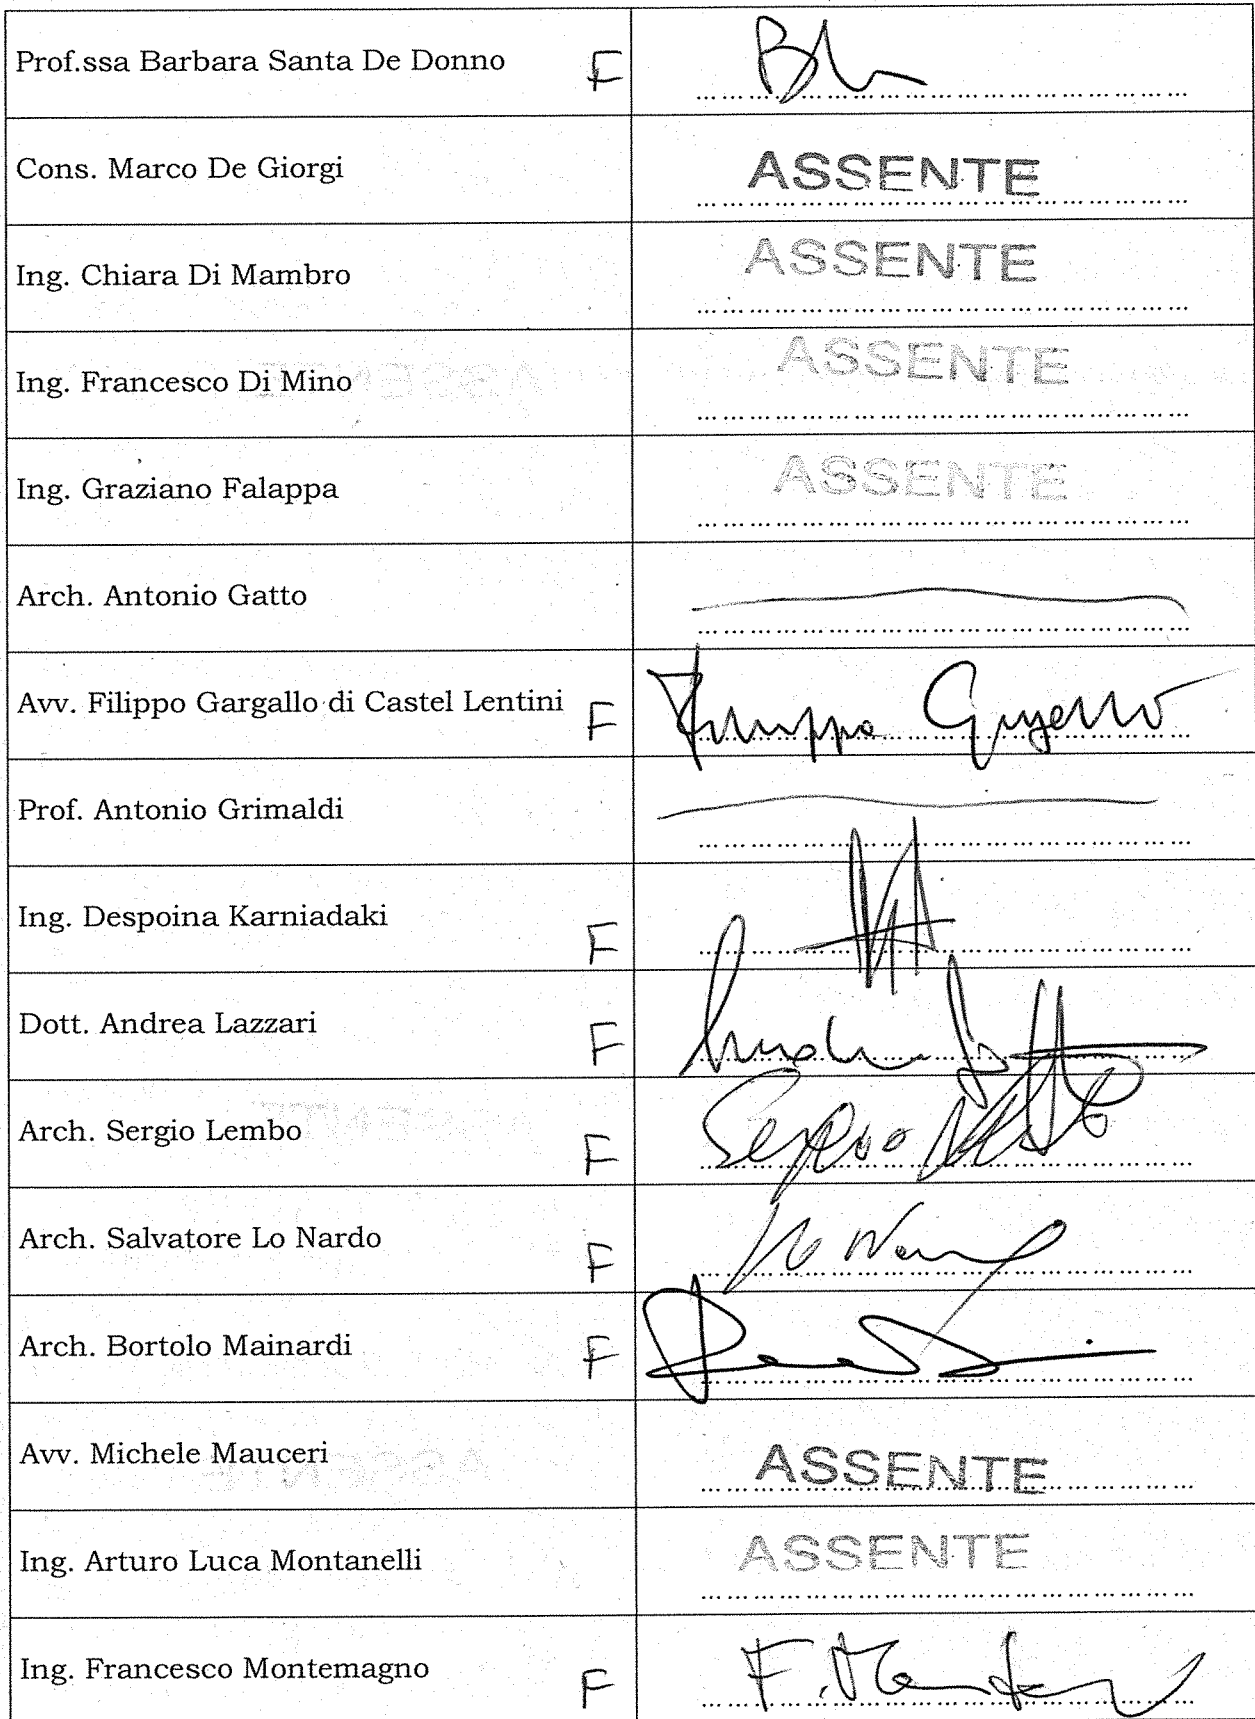 Prof.ssa Barbara Santa De Donno F
Cons. Marco De Giorgi ASSENTE
Ing. Chiara Di Mambro ASSENTE
Ing. Francesco Di Mino ASSENTE
Ing. Graziano Falappa ASSENTE
Arch. Antonio Gatto
Avv. Filippo Gargallo di Castel Lentini F
Prof. Antonio Grimaldi
Ing. Despoina Karniadaki F
Dott. Andrea Lazzari F
Arch. Sergio Lembo F Sergio
Arch. Salvatore Lo Nardo F
Arch. Bortolo Mainardi F
Avv. Michele Mauceri ASSENTE
Ing. Arturo Luca Montanelli ASSENTE
Ing. Francesco Montemagno F